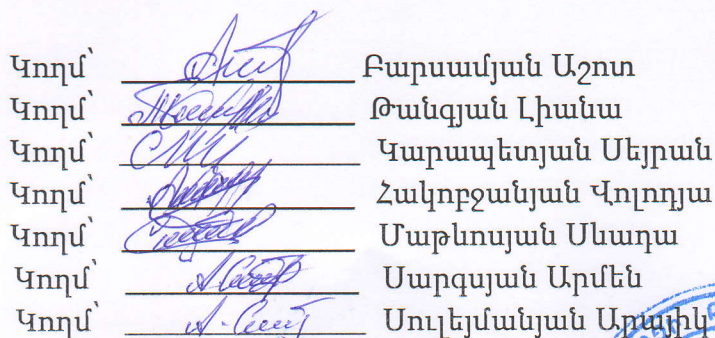 Կողմ՝ Բարսամյան Աշոտ
Կողմ՝ Թանգյան Լիանա
Կողմ՝ Կարապետյան Սեյրան
Կողմ՝ Հակոբջանյան Վոլոդյա
Կողմ՝ Մաթևոսյան Սևադա
Կողմ՝ Սարգսյան Արմեն
Կողմ՝ Սուլեյմանյան Արայիկ